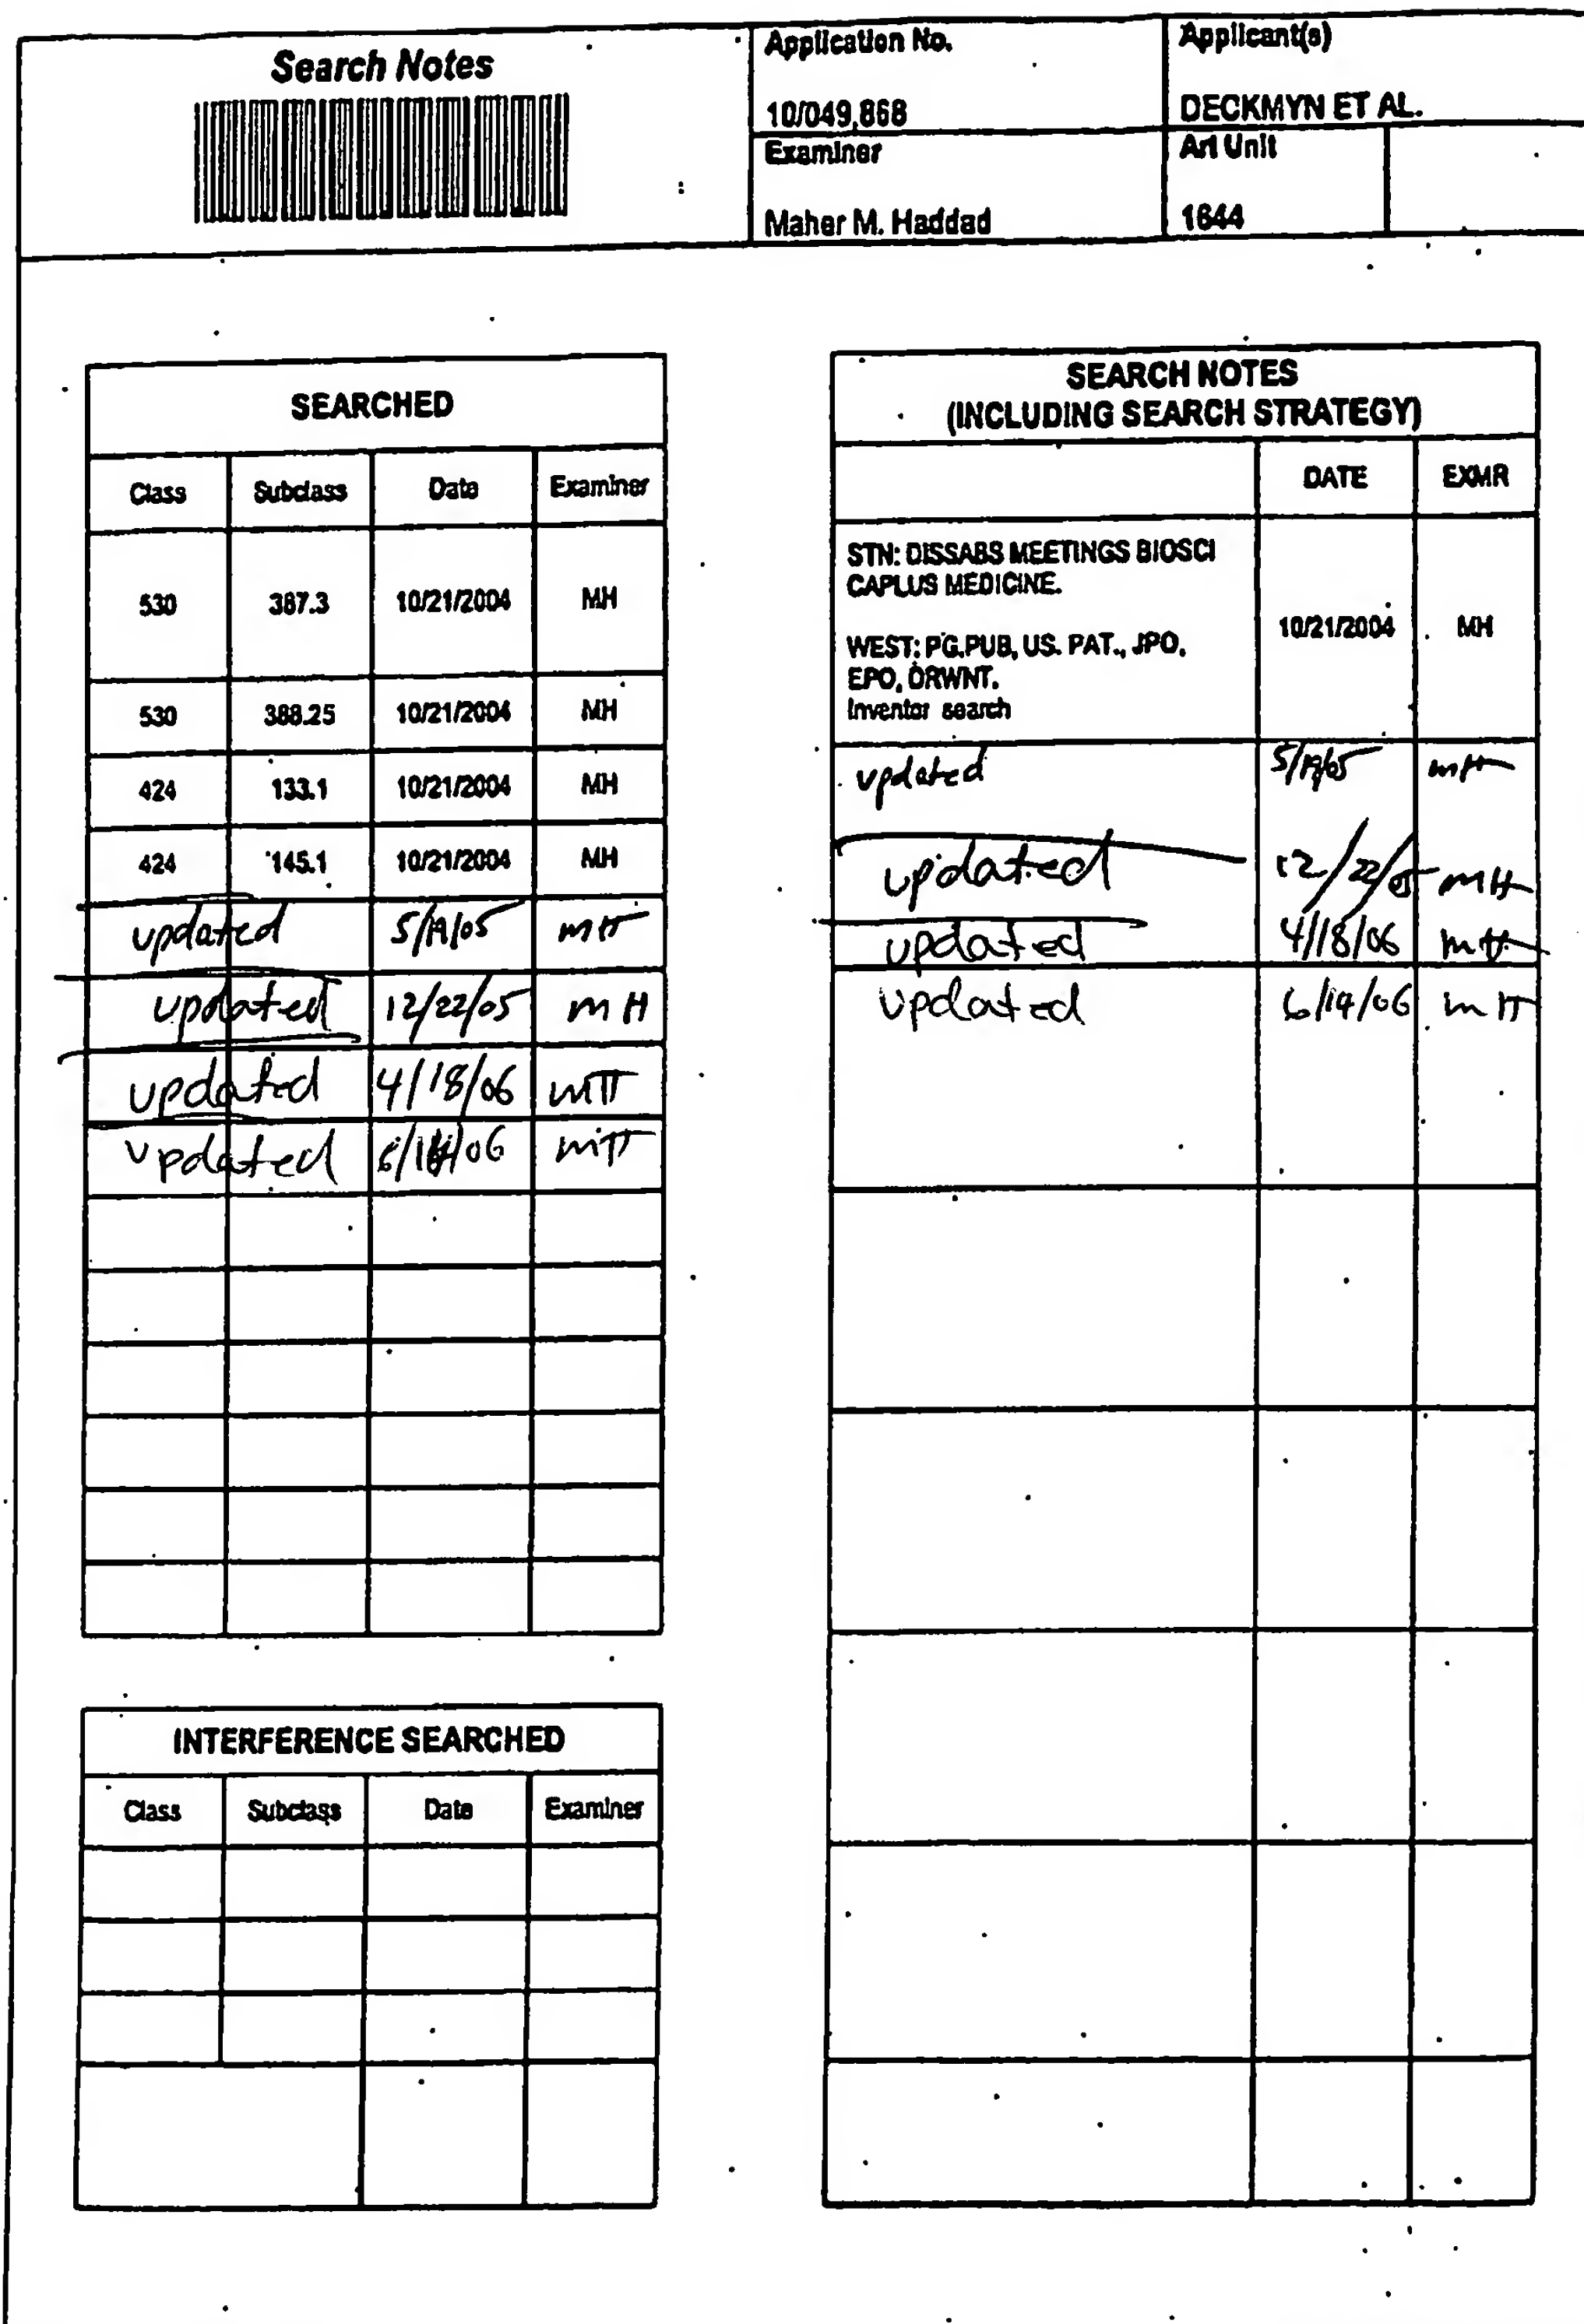 Search Notes
Application No.
10/049,868
Applicant(s)
DECKMYN ET AL.
Examiner
Maher M. Haddad
Art Unit
1644
SEARCHED
Class Subclass Date Examiner
530 387.3 10/21/2004 MH
530 388.25 10/21/2004 MH
424 133.1 10/21/2004 MH
424 145.1 10/21/2004 MH
updated 5/19/05 MH
updated 12/22/05 MH
updated 4/18/06 MH
updated MH
INTERFERENCE SEARCHED
Class Subclass Date Examiner
SEARCH NOTES
(INCLUDING SEARCH STRATEGY)
DATE EXMR
STN: DISSABS MEETINGS BIOSCI
CAPLUS MEDICINE.
10/21/2004 MH
WEST: PG.PUB, US. PAT., JPO,
EPO, DRWNT.
Inventor search
updated 5/19/05 MH
updated 12/22/05 MH
updated 4/18/06 MH
updated 6/14/06 MH